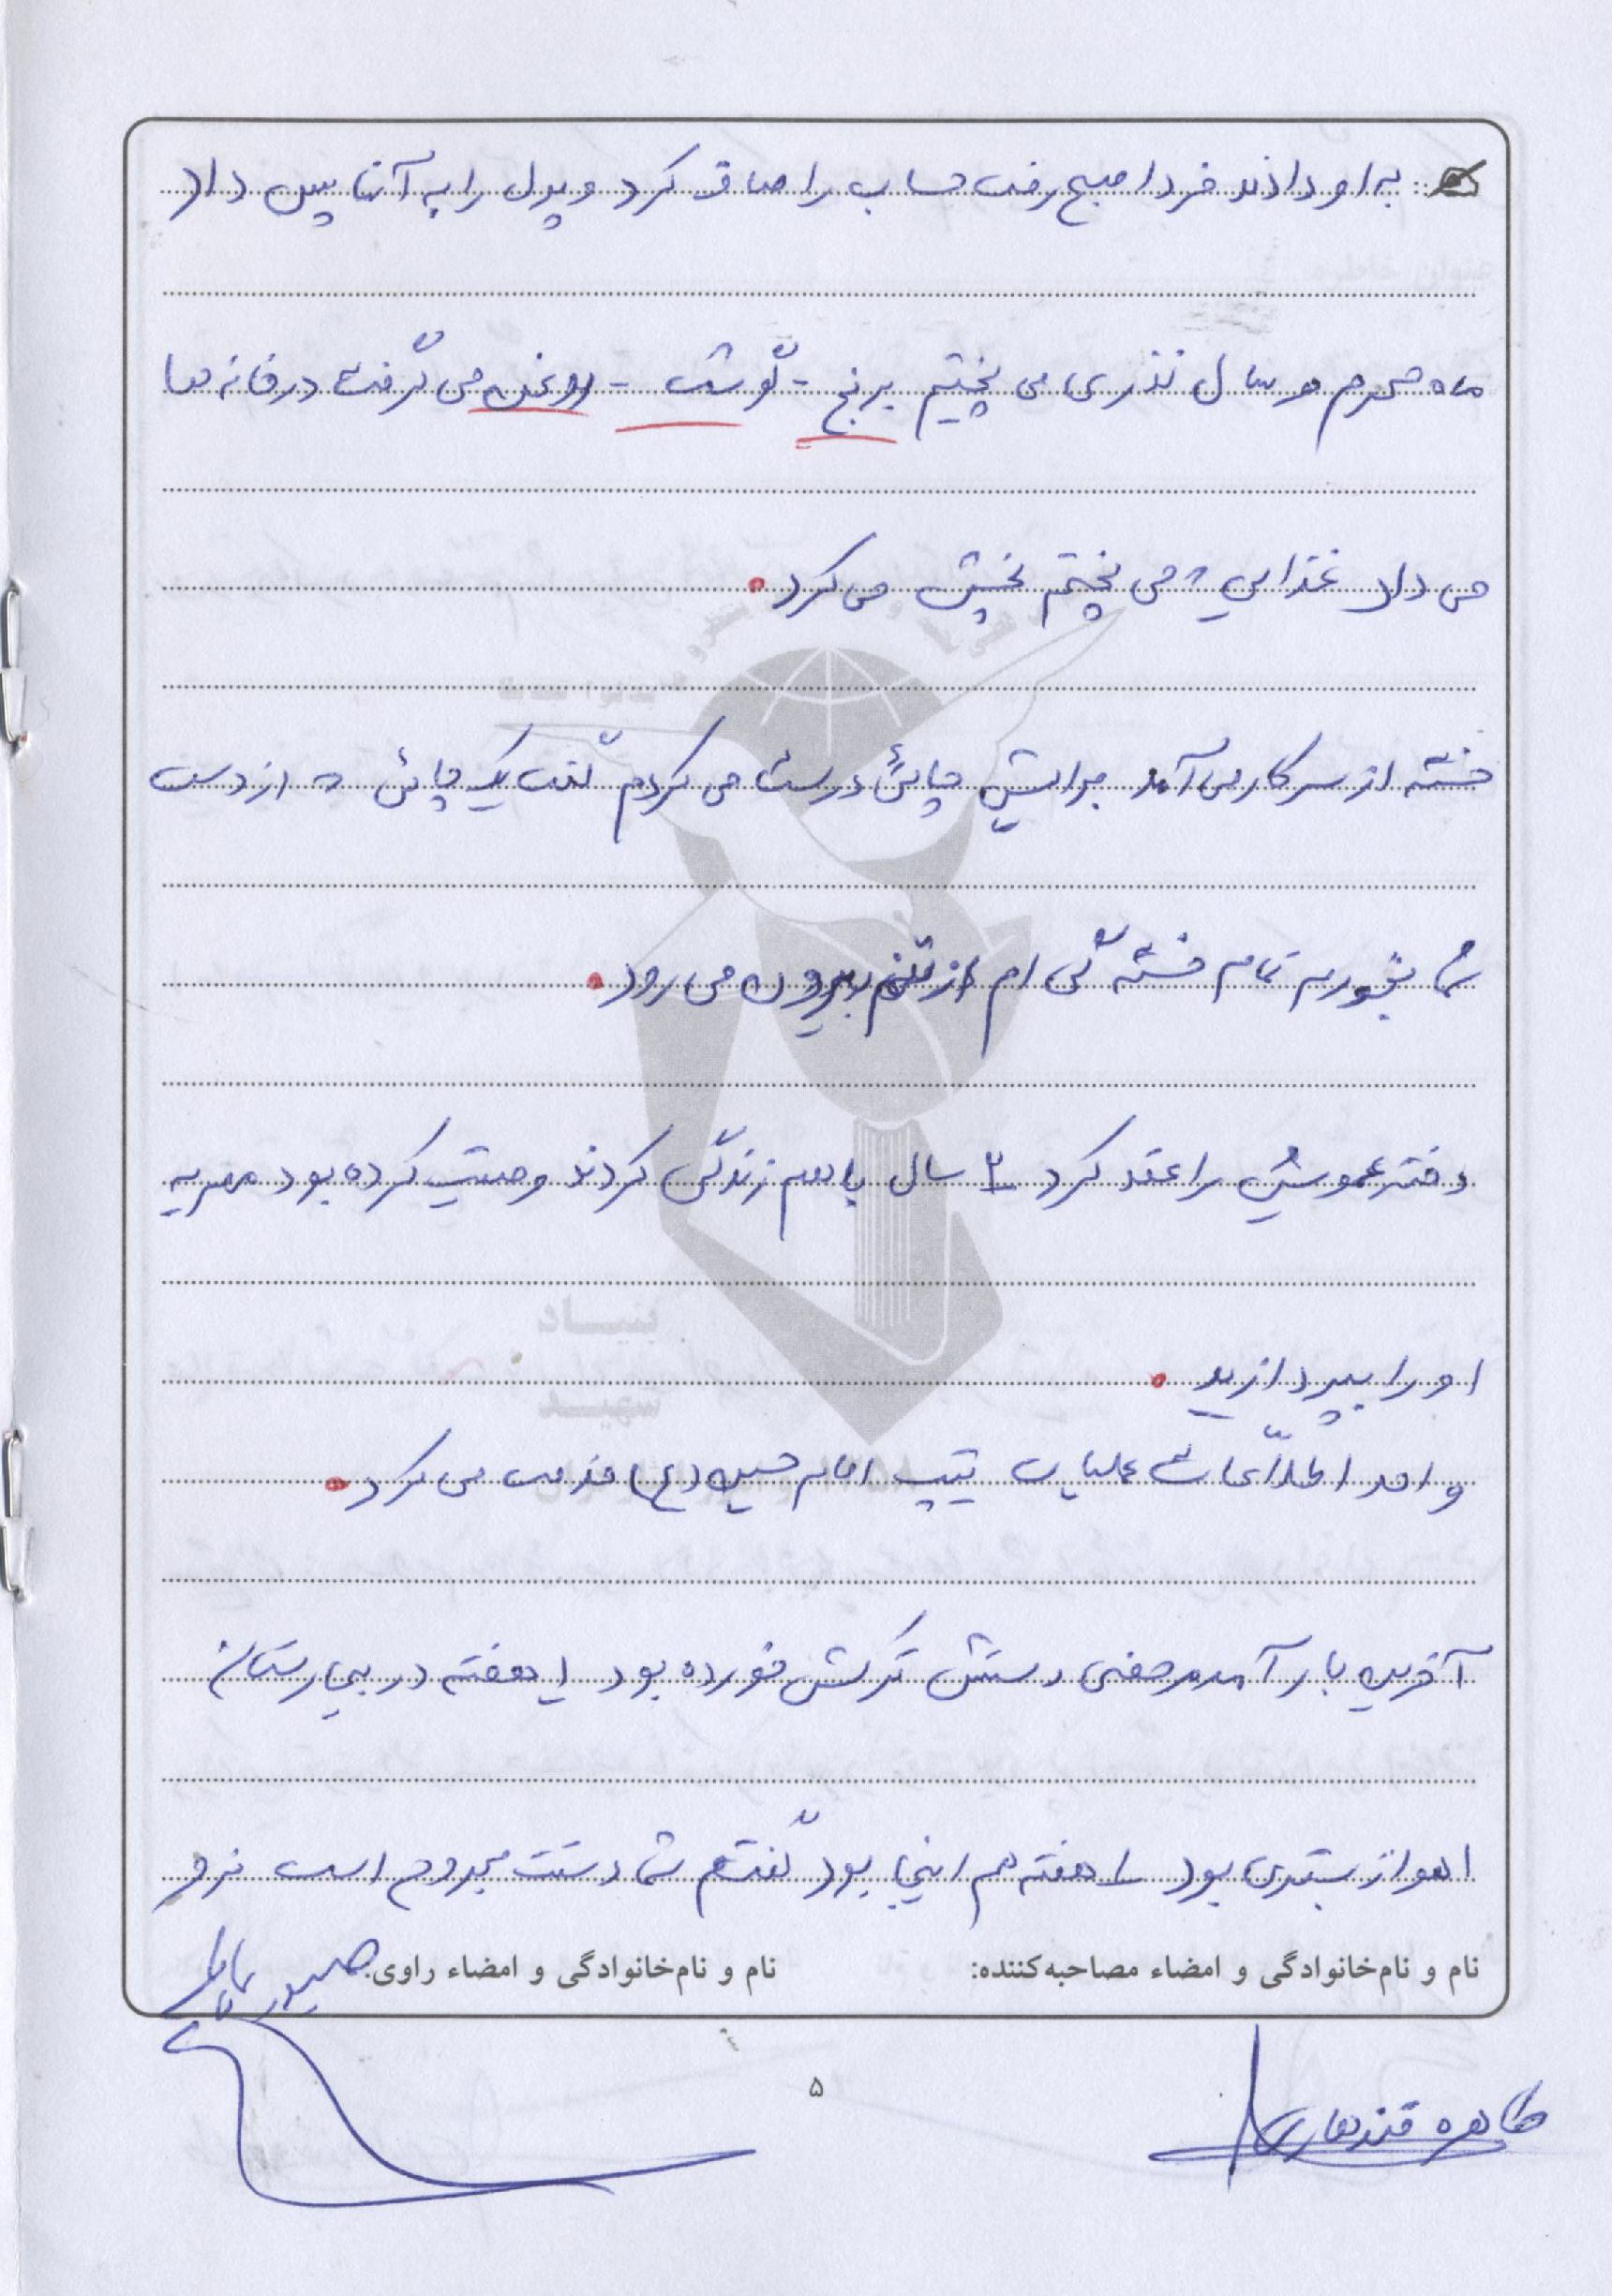 به او دادند فردا صبح رفت حساب را صاف کرد و پول را به آنها پس داد
ماه محرم هر سال نذری می پختیم برنج - گوشت - روغن می گرفت در خانه ها
می داد غذایی که می پختم پخش می کرد.
خسته از سر کار می آمد برایش چائی درست می کردم گفت یک چائی که از دست
شما بخورم تمام خسته گی ام از تنم بیرون می رود.
دختر عمویش را عقد کرد ۳ سال با هم زندگی کردند وصیت کرده بود مهریه
او را بپردازید.
واحد اطلاعات عملیات تیپ امام حسین (ع) خدمت می کرد.
آخرین بار آمد مرخصی دستش ترکش خورده بود ۱ هفته در بیمارستان
اهواز بستری بود ۱ هفته هم اینجا بود گفتم شما دستت مجروح است نرو
نام و نام‌خانوادگی و امضاء مصاحبه‌کننده:
نام و نام‌خانوادگی و امضاء راوی:
طاهره قندهاری
۵
بنیاد
شهید